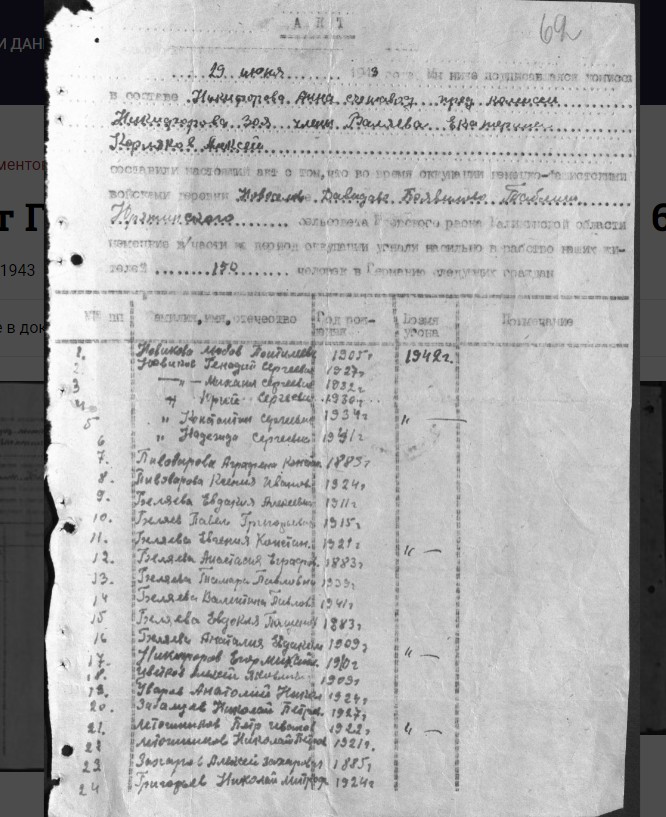 А К Т
62
29 июня 1943 года, мы ниже подписавшиеся комисси
в составе Никифорова Анна
Никифорова Зоя член Валяева Екатерина
Корляков Алексей
составили настоящий акт о том, что во время оккупации немецко-фашистскими
войсками деревни
сельсовета района Калининской области
немецкие в/части за период оккупации угнали насильно в рабство наших жи-
телей 150 человек в Германию следующих граждан
№№ пп Фамилия, имя, отчество Год рож-дения Время угона Примечание
1. Новикова Любовь 1905г 1942г.
2. Новиков Генадий Сергеевич 1927г
3 —"— Михаил Сергеевич 1932г
4 " Юрий Сергеевич 1930г
5 " Константин Сергеевич 1934г "—
6 " Надежда Сергеевна 1941г
7. Пивоварова Аграфена 1883г
8. Пивоварова Ксения Иванов. 1924г
9. Беляева Евдакия Алексеев 1911г
10. Беляев Павел Григорьевич 1915г
11. Беляева Евгения Констан. 1921г
12. Беляева Анастасия 1883г "—
13. Беляева Тамара Павловна 1939г
14 Беляева Валентина Павлов 1941г
15 Беляева Евдокия 1883г
16 Беляева Анаталия 1909г
17. Никифоров Егор "—
18. Цветков Алексей Яковлевич 1909г
19. Уваров Анатолий 1924г
20. Николай Петров. 1927г
21. Летошников Пётр Иванов 1922г "—
22 Летошников Николай Петров 1921г.
23 Захаров Алексей Захарович 1885г
24 Григорьев Николай Митроф 1924г
И ДАН
менто
т Г
6
1943
е в док